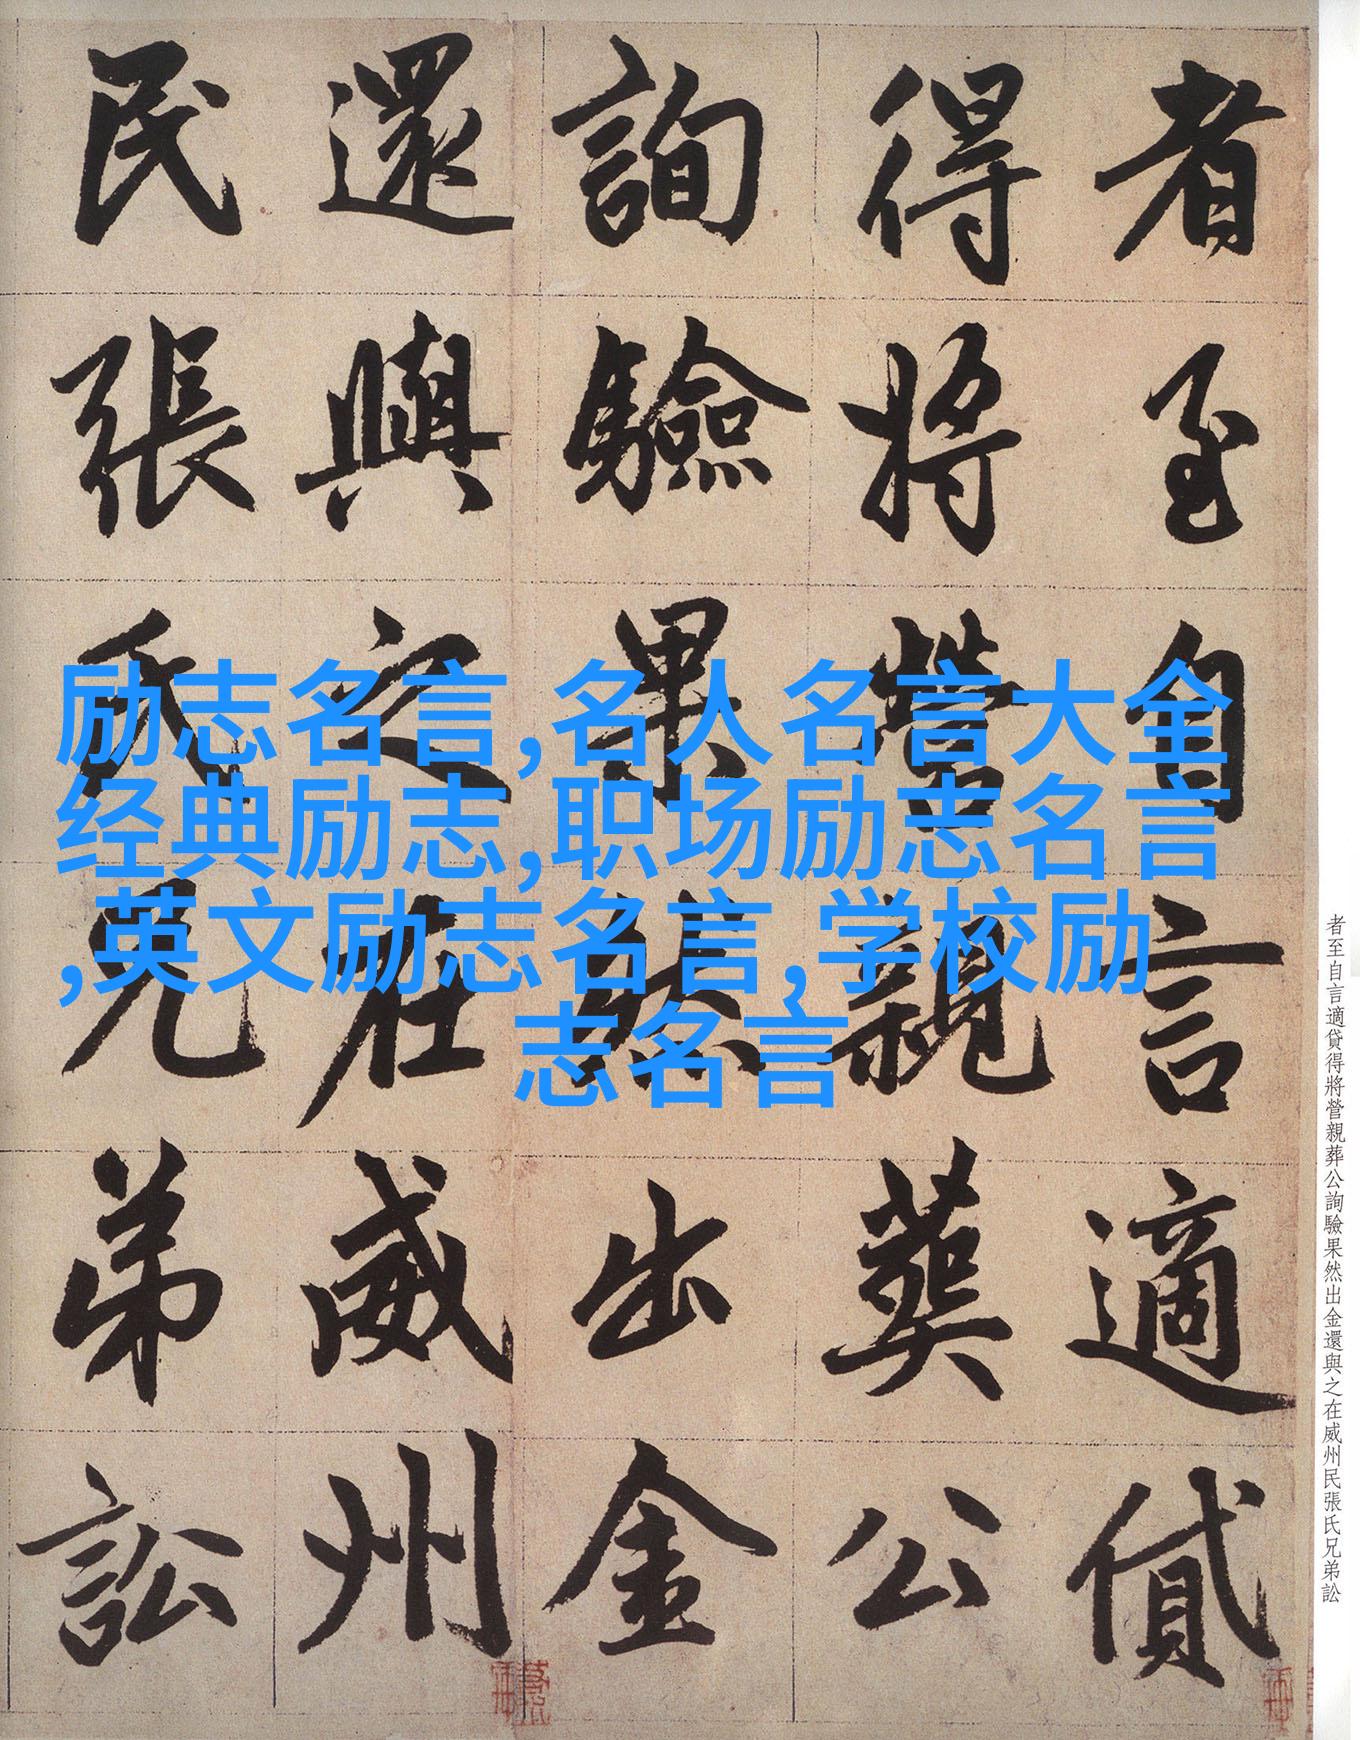 者至自言適貸
得將營親葬公
詢驗果然出金
還與之在威州
民張氏兄弟訟
励志名言,名人名言大全
经典励志,职场励志名言
,英文励志名言,学校励
志名言
者至自言適貸得將營親葬公詢驗果然出金還與之在威州民張氏兄弟訟